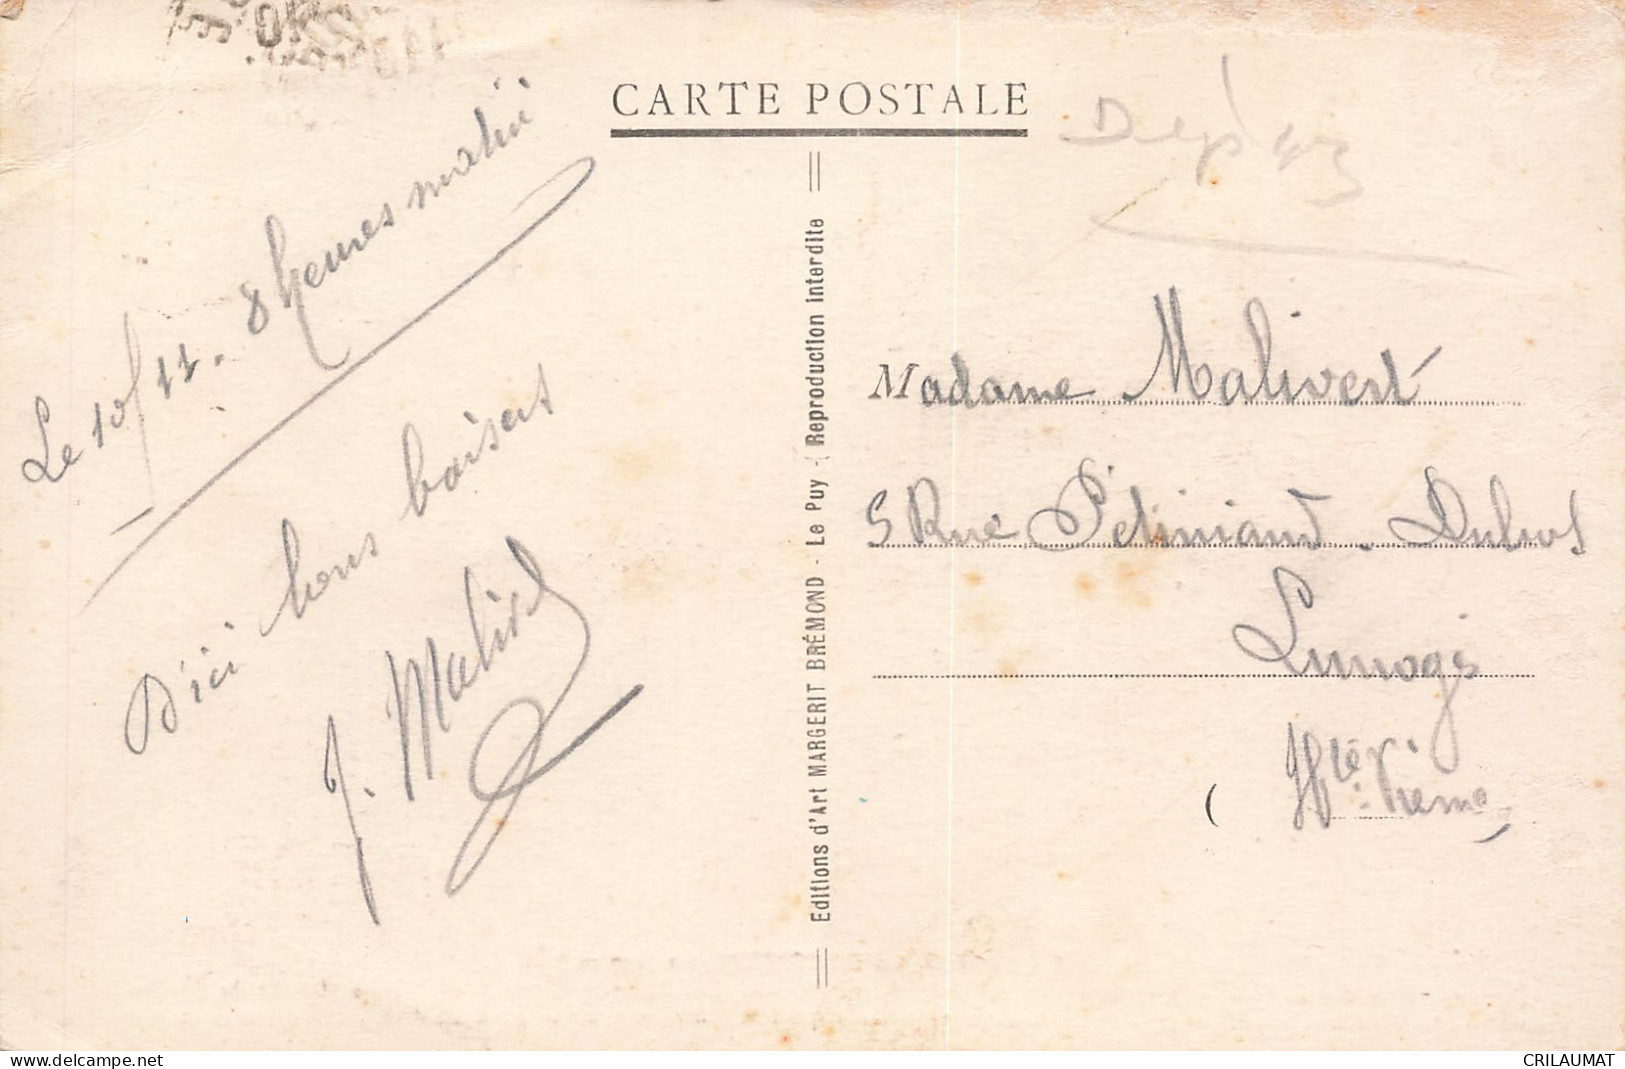 CARTE POSTALE
Le 10/11. 8 heures matin
D'ici bons baisers
J. Malivert
Editions d'Art MARGERIT BRÉMOND - Le Puy - ( Reproduction interdite
Madame Malivert
5 Rue Pétiniaud - Dubos
Limoges
( Hte Vienne
www.delcampe.net
CRILAUMAT